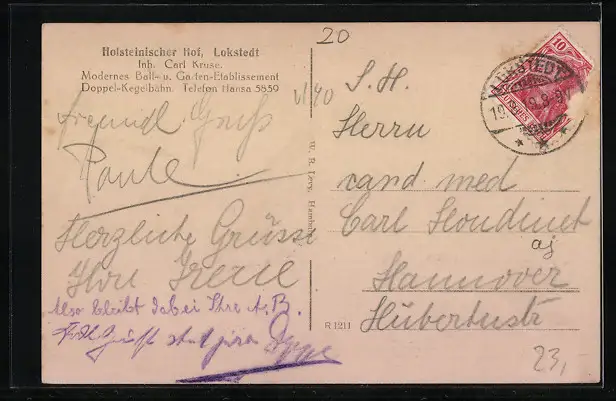 20
Holsteinischer Hof, Lokstedt
Inh. Carl Kruse.
Modernes Ball- u. Garten-Etablissement
Doppel-Kegelbahn. Telefon Hansa 5859
freundl. Gruß
Paule
Herzliche Grüsse
Ihre Irene
Also bleibt dabei Ihre A. B.
W. B. Levy, Hamburg
R 1211
10
LOKSTEDT
S. H.
Herrn
cand med
Carl Houdinet
Hannover
Hubertustr
23,-